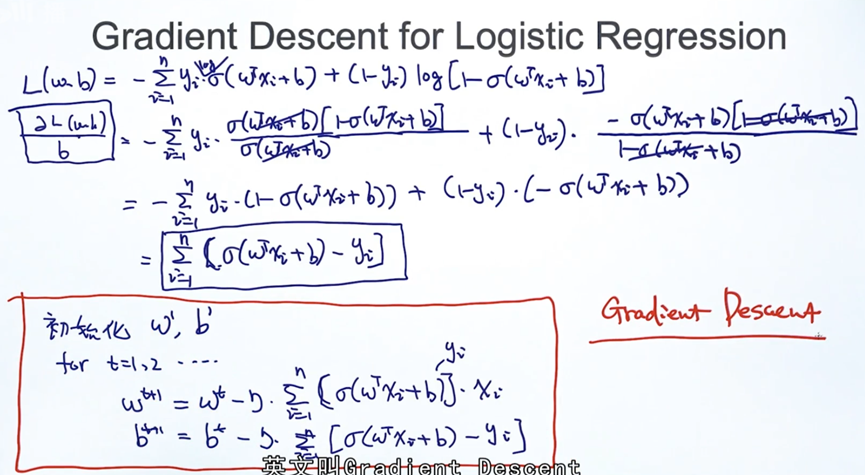 Gradient Descent for Logistic Regression
L(w,b) = - Σ_{i=1}^{n} y_i log σ(wᵀx_i+b) + (1-y_i) log[1-σ(wᵀx_i+b)]
∂L(w,b)/b = - Σ_{i=1}^{n} y_i · σ(wᵀx_i+b)[1-σ(wᵀx_i+b)]/σ(wᵀx_i+b) + (1-y_i) · -σ(wᵀx_i+b)[1-σ(wᵀx_i+b)]/1-σ(wᵀx_i+b)
= - Σ_{i=1}^{n} y_i · (1-σ(wᵀx_i+b)) + (1-y_i) · (-σ(wᵀx_i+b))
= Σ_{i=1}^{n} [σ(wᵀx_i+b) - y_i]
Gradient Descent
初始化 w¹, b¹
for t=1,2 ....
y_i
w^{t+1} = w^t - η · Σ_{i=1}^{n} [σ(wᵀx_i+b)] · x_i
b^{t+1} = b^t - η · Σ_{i=1}^{n} [σ(wᵀx_i+b) - y_i]
英文叫Gradient Descent